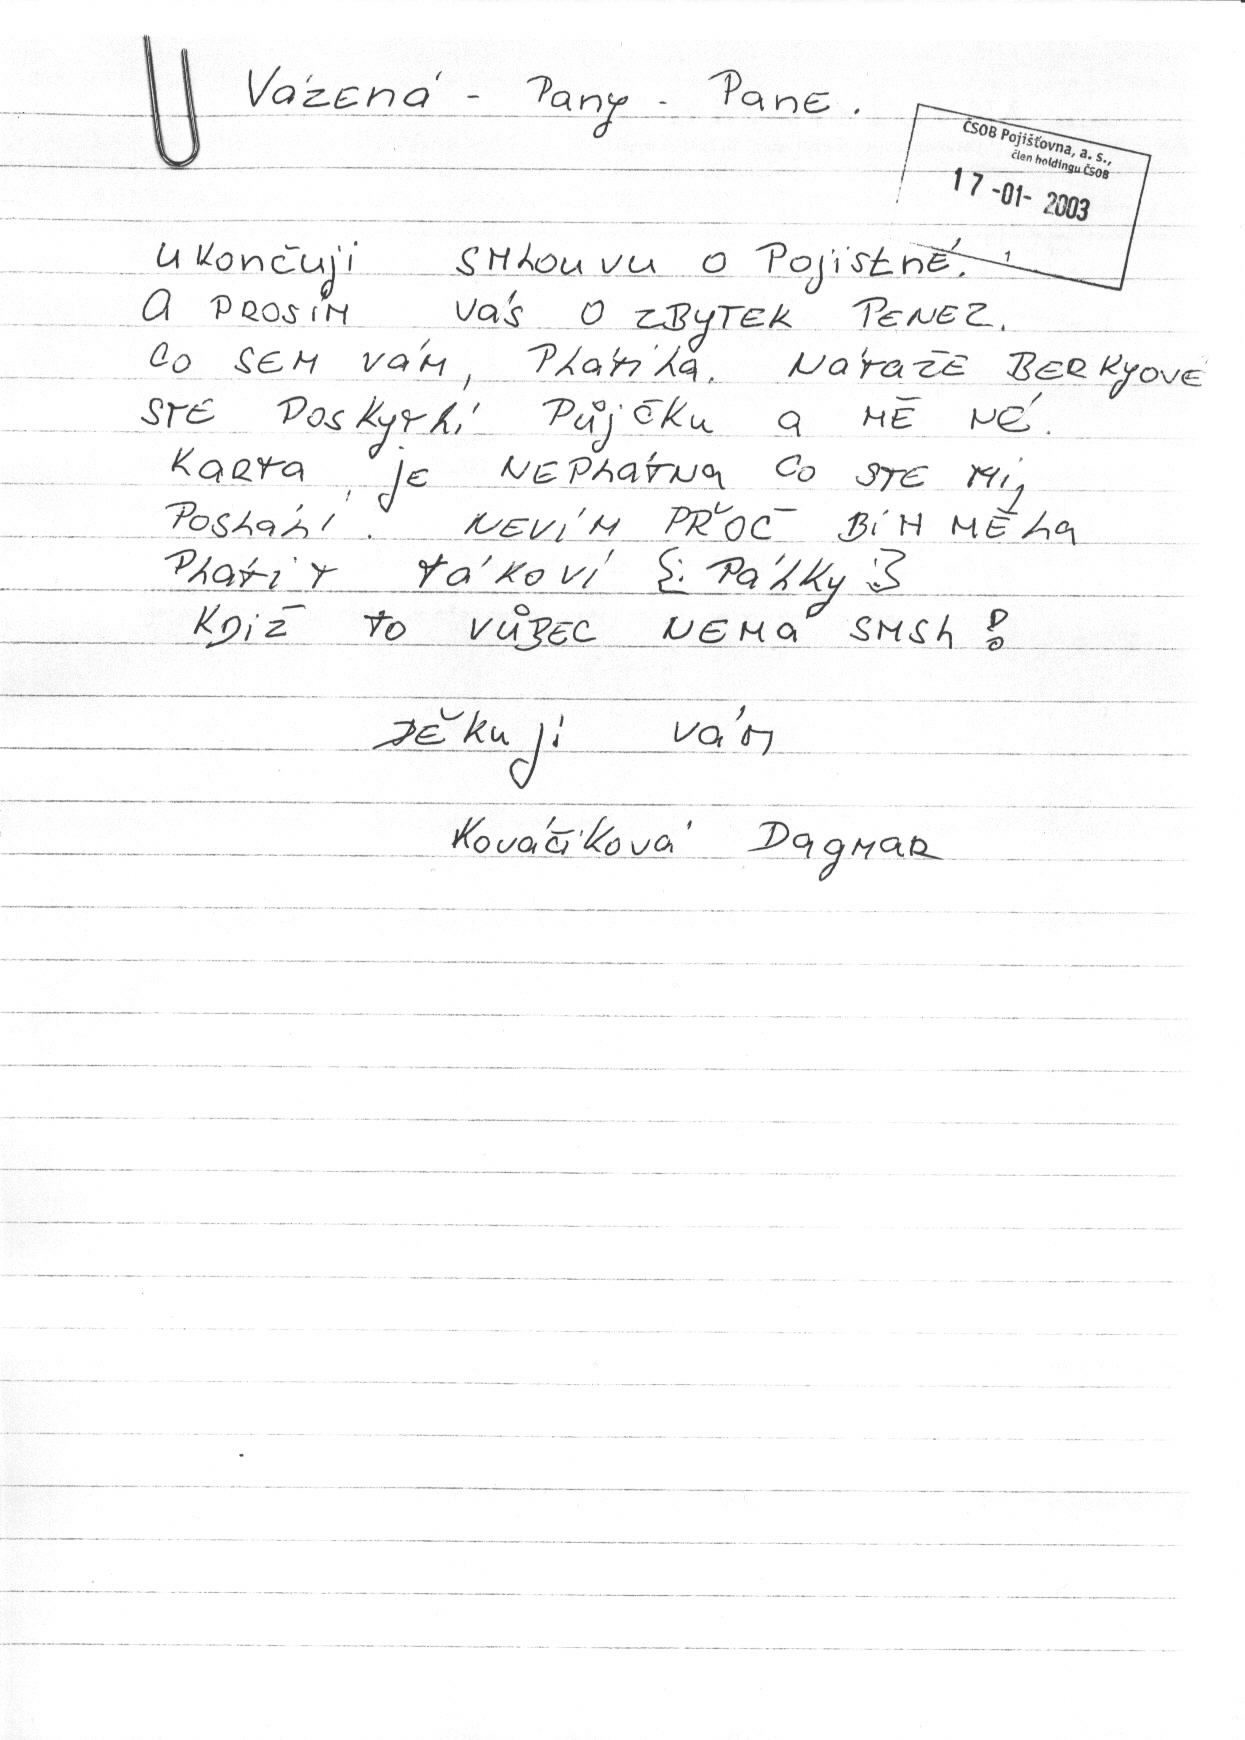 Vázená - Pany - Pane.
ČSOB Pojišťovna, a. s.,
člen holdingu ČSOB
17 -01- 2003
1
ukončuji SMLOUVU O Pojistné.
A PROSÍM VÁS O ZBYTEK PENEZ.
CO SEM VÁM, PLÁTILA. NÁTAŽE BERKYOVE
STE POSKYTLI PŮJČKU a MĚ NÉ.
KARTA je NEPLÁTNA CO STE MI,
POSLALI. NEVÍM PŘOČ BÍH MĚLA
PLATIT TÁKOVÍ {: PÁLKY :}
KDIŽ TO VŮBEC NEMÁ SMSL!
DĚKUJI VÁM
Kováčiková DAGMAR